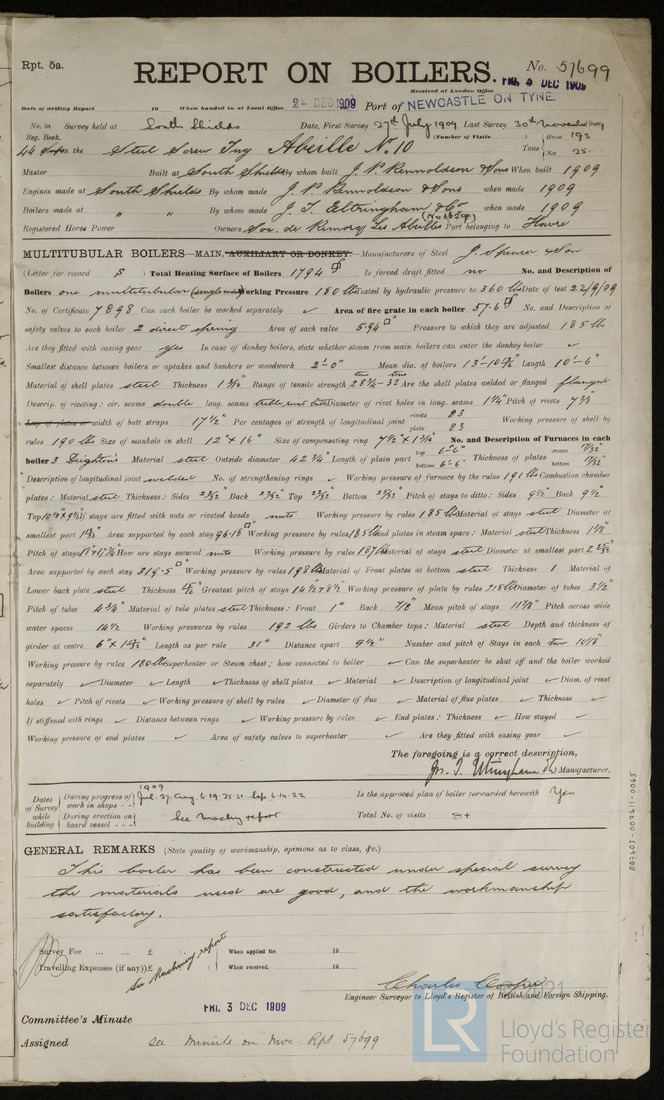 Rpt. 5a.
REPORT ON BOILERS.
No. 57699
Received at London Office FRI. 3 DEC 1909
Date of writing Report 19 When handed in at Local Office 2- DEC 1909 Port of NEWCASTLE ON TYNE.
No. in Survey held at South Shields Date, First Survey 27th July 1909 Last Survey 30th November 1909
Reg. Book. (Number of Visits ) Gross 193
44 on the Steel Screw Tug Abeille No. 10 Tons Net 25-
Master Built at South Shields By whom built J. P. Rennoldson & Sons When built 1909
Engines made at South Shields By whom made J. P. Rennoldson & Sons when made 1909
Boilers made at " " By whom made J. T. Eltringham & Co when made 1909
Registered Horse Power Owners Soc. de Remorq Les Abeilles Port belonging to Havre
MULTITUBULAR BOILERS—MAIN, AUXILIARY OR DONKEY.—Manufacturers of Steel J. Spencer & Son
(Letter for record S ) Total Heating Surface of Boilers 1794 Is forced draft fitted no No. and Description of
Boilers one multitubular (single ended) Working Pressure 180 lbs Tested by hydraulic pressure to 360 lbs Date of test 22/9/09
No. of Certificate 7898 Can each boiler be worked separately ✓ Area of fire grate in each boiler 57.6 No. and Description of
safety valves to each boiler 2 direct spring Area of each valve 5.94 Pressure to which they are adjusted 185 lbs
Are they fitted with easing gear yes In case of donkey boilers, state whether steam from main boilers can enter the donkey boiler ✓
Smallest distance between boilers or uptakes and bunkers or woodwork 2'-0" Mean dia. of boilers 13'-10 Length 10'-6"
Material of shell plates steel Thickness 1 3/16" Range of tensile strength 28 1/4-32 tons Are the shell plates welded or flanged flanged
Descrip. of riveting: cir. seams double long. seams Diameter of rivet holes in long. seams 1 1/4" Pitch of rivets 7 3/8
Lap of plates or width of butt straps 17 1/2" Per centages of strength of longitudinal joint rivets 83 plate 83 Working pressure of shell by
rules 190 lbs Size of manhole in shell 12" x 16" Size of compensating ring 7 1/2" x 1 3/16" No. and Description of Furnaces in each
boiler 3 Deightons Material steel Outside diameter 42 3/4" Length of plain part top 6-6" bottom 6-6" Thickness of plates crown 17/32" bottom 17/32"
Description of longitudinal joint welded No. of strengthening rings ✓ Working pressure of furnace by the rules 191 lbs Combustion chamber
plates: Material steel Thickness: Sides 23/32" Back 23/32" Top 23/32" Bottom 27/32" Pitch of stays to ditto: Sides 9 1/2" Back 9 1/2"
Top If stays are fitted with nuts or riveted heads nuts Working pressure by rules 185 lbs Material of stays steel Diameter at
smallest part Area supported by each stay 96.18 Working pressure by rules 185 lbs End plates in steam space: Material steel Thickness 1 1/8"
Pitch of stays How are stays secured nuts Working pressure by rules 187 lbs Material of stays steel Diameter at smallest part
Area supported by each stay 319.5 Working pressure by rules 198 lbs Material of Front plates at bottom steel Thickness 1 Material of
Lower back plate steel Thickness Greatest pitch of stays 14 1/2 x 8 1/2 Working pressure of plate by rules 215 lbs Diameter of tubes 3 1/2"
Pitch of tubes 4 3/4" Material of tube plates steel Thickness: Front 1" Back 7/8" Mean pitch of stays 11 7/8" Pitch across wide
water spaces 14 1/2 Working pressures by rules 192 lbs Girders to Chamber tops: Material steel Depth and thickness of
girder at centre 6" x Length as per rule 31" Distance apart 9 1/2" Number and pitch of Stays in each two 10 1/8"
Working pressure by rules 180 lbs Superheater or Steam chest; how connected to boiler ✓ Can the superheater be shut off and the boiler worked
separately ✓ Diameter ✓ Length ✓ Thickness of shell plates ✓ Material ✓ Description of longitudinal joint ✓ Diam. of rivet
holes ✓ Pitch of rivets ✓ Working pressure of shell by rules ✓ Diameter of flue ✓ Material of flue plates ✓ Thickness ✓
If stiffened with rings ✓ Distance between rings ✓ Working pressure by rules ✓ End plates: Thickness ✓ How stayed ✓
Working pressure of end plates ✓ Area of safety valves to superheater ✓ Are they fitted with easing gear ✓
The foregoing is a correct description,
Jos. T. Eltringham & Co Manufacturer.
Dates of Survey while building
During progress of work in shops - - 1909 Jul. 27. Aug. 6.19.25.31. Sep. 6.14.22 Is the approved plan of boiler forwarded herewith Yes
During erection on board vessel - - - See Machy report Total No. of visits
GENERAL REMARKS (State quality of workmanship, opinions as to class, &c.)
This boiler has been constructed under special survey
the materials used are good, and the workmanship
satisfactory.
Survey Fee ... ... £ : : When applied for. 19
Travelling Expenses (if any) £ : : When received. 19
See Machinery report
Charles Cooper
Engineer Surveyor to Lloyd's Register of British and Foreign Shipping.
FRI. 3 DEC 1909
Committee's Minute
Assigned See Minute on Mc. Rpt 57699
007403-007411-0065
LR
Lloyd's Register
Foundation